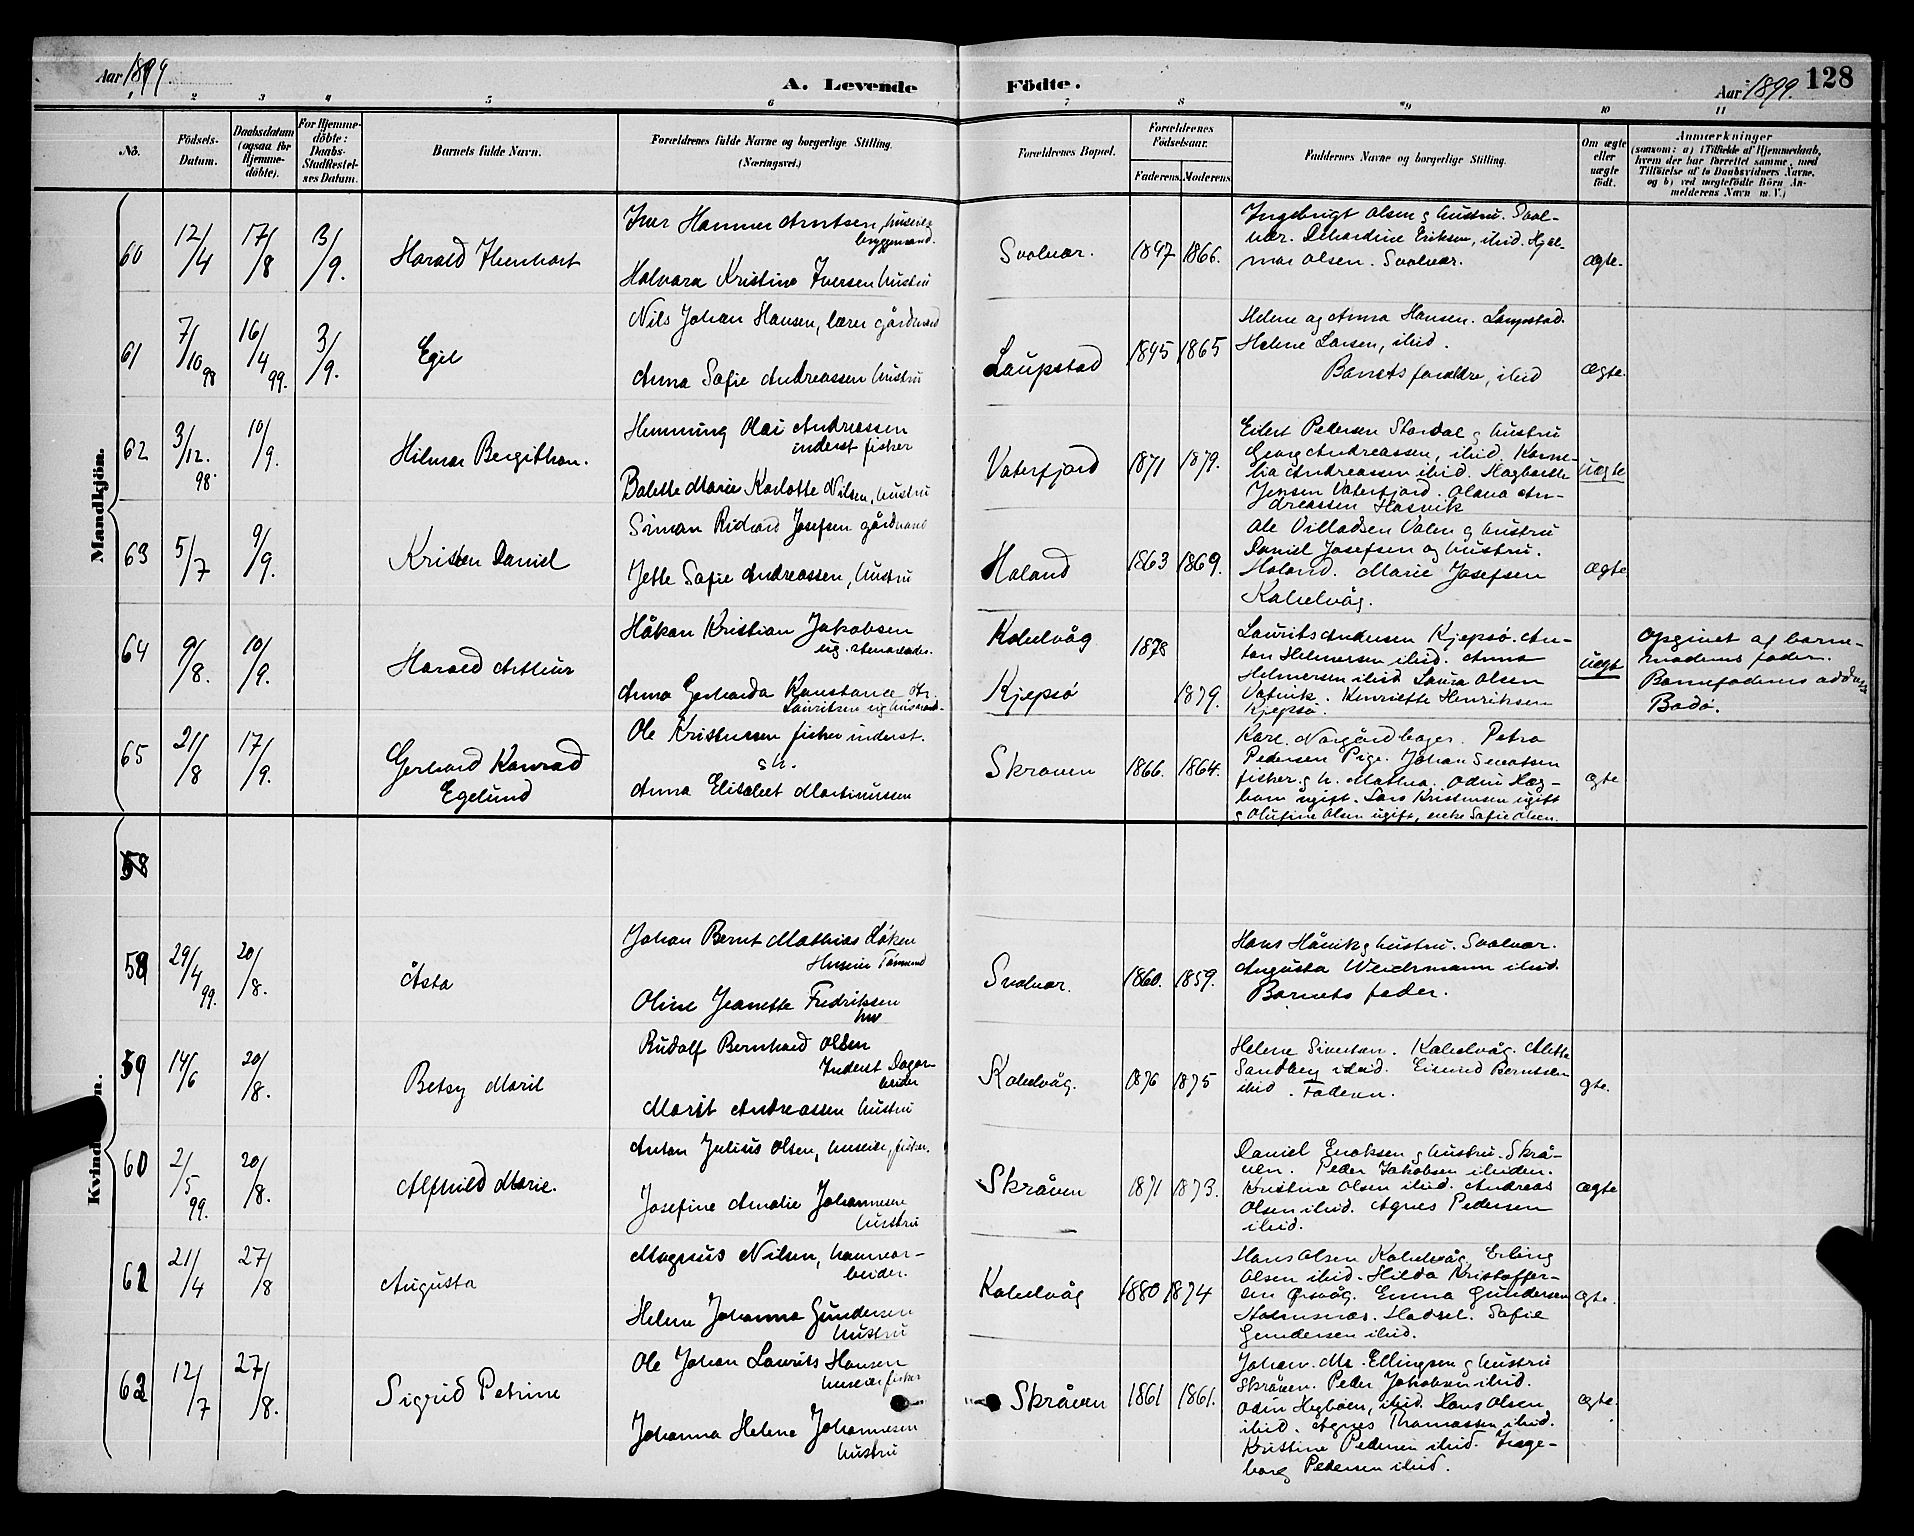 Aar 1899.
A. Levende
Födte.
Aar 1899.
128
1 2 3 4 5 6 7 8 9 10 11
No.
Födsels-
Datum.
Daabsdatum
(ogsaa for
Hjemme-
döbte).
For Hjemme-
döbte:
Daabs-
Stadfæstel-
ses Datum.
Barnets fulde Navn.
Forældrenes fulde Navne og borgerlige Stilling.
(Næringsvei.)
Forældrenes Bopæl.
Forældrenes
Födselsaar.
Faderens. Moderens.
Faddernes Navne og borgerlige Stilling.
Om ægte
eller
uægte
födt.
Anmærkninger
(saasom: a) i Tilfælde af Hjemmedaab,
hvem der har forrettet samme, med
Tilföielse af to Daabsvidners Navne,
og b) ved uægtefödte Börn An-
melderens Navn m. V.)
Mandkjön.
60
12/4
17/8
3/9.
Harald
Hammer Arntsen,
Halvara Kristine Iversen hustru
Svolvær.
1847 1866.
Ingebrigt Olsen g hustru. Svol-
vær. Eriksen, ibid. Hjal-
mar Olsen. Svolvær.
ægte.
61
7/10 98
16/4 99.
3/9.
Egil
Nils Johan Hansen, lærer gårdmand
Anna Sofie Andreassen hustru
Laupstad
1845 1865
Helene og Anna Hansen. Laupstad.
Helene Larsen, ibid.
Barnets forældre, ibid
ægte.
62
3/12. 98.
10/9.
Hilmar Bergithon.
Hemming Olai Andreassen
inderst fisker
Balette Marie Karlotte Nilsen, hustru
Vaterfjord
1871 1879.
Eilert Pedersen Stordal g hustru
Georg Andreassen, ibid. Karne-
lia Andreassen ibid. Hagbarth
Jensen Vaterfjord. Olava An-
dreassen Hasvik
uægte
63
5/7
9/9.
Kristen Daniel
Simon Rickard Josefsen gårdmand
Jette Sofie Andreassen, hustru
Holand
1863 1869.
Ole Villadsen Valen g hustru
Daniel Josefsen og hustru.
Holand. Marie Josefsen
Kabelvåg.
ægte
64
9/8.
10/9.
Harald Arthur
Håkan Kristian Jakobsen
ug.
Anna Gerharda Konstance
Lauritsen ug
Kabelvåg
Kjepsø
1878
1879.
Laurits Andersen Kjepsø. An-
ton Helmersen ibid. Anna
Helmersen ibid Laura Olsen
Vatvik. Henriette Henriksen
Kjepsø.
uægt
Opgivet af barne-
moderens fader.
Barnefaderens
Bodø.
65
21/8
17/9.
Gerhard Konrad
Egelund
Ole Kristensen fisker inderst.
g h.
Anna Elisabet Martinussen
Skroven
1866. 1864.
Karl Norgård bager. Petra
Pedersen Pige. Johan
fisker g h. Mathea. Odin Hag-
ugift. Lars Kristensen ugift
g Olufine Olsen ugift, enke Sofie Olsen.
ægte
Kvindekjön.
58
58
29/4 99.
20/8.
Åsta
Johan Bernt Mathias Løken
Oline Jeanette Fredriksen
hu
Svolvær.
1860. 1859.
Hans Håvik g hustru. Svolvær.
Augusta Weidemann ibid.
Barnets fader.
59
14/6
20/8.
Betsy Marit
Rudolf Bernhard Olsen
Inderst Dagar-
beider
Marit Andreassen hustru
Kabelvåg.
1876 1875
Helene Sivertsen. Kabelvåg. Alette
Sandberg ibid. Eisuind Berntsen
ibid. Faderen.
gte.
60
2/5 99.
20/8.
Alfhild Marie.
Anton Julius Olsen, huseier, fisker.
Josefine Amalie Johannesen
hustru
Skråven
1871 1873.
Daniel Enoksen g hustru. Skrå-
ven. Peder Jakobsen ibiden.
Kristine Olsen ibid. Andreas
Olsen ibid. Agnes Pedersen
ibid.
ægte
61
21/4
27/8
Augusta
Magnus Nilsen, havnear-
beider.
Helene Johanna Gundersen
hustru
Kabelvåg
1880 1874
Hans Olsen Kabelvåg. Erling
Olsen ibid. Hilda Kristoffer-
sen Ørsvåg. Emma Gundersen
Holmsnæs. Hadsel. Sofie
Gundersen ibid.
ægte.
62
12/7
27/8.
Sigrid Petrine
Ole Johan Laurits Hansen
huseier fisker
Johanna Helene Johannesen
hustru
Skråven
1861 1861.
Johan. M. Ellingsen g hustru
Skråven. Peder Jakobsen ibid.
Odin Hegboen, ibid. Lars Olsen
ibid. Agnes Thomassen ibid.
Kristine Pedersen ibid. Inge-
borg Pedersen ibid.
ægte.